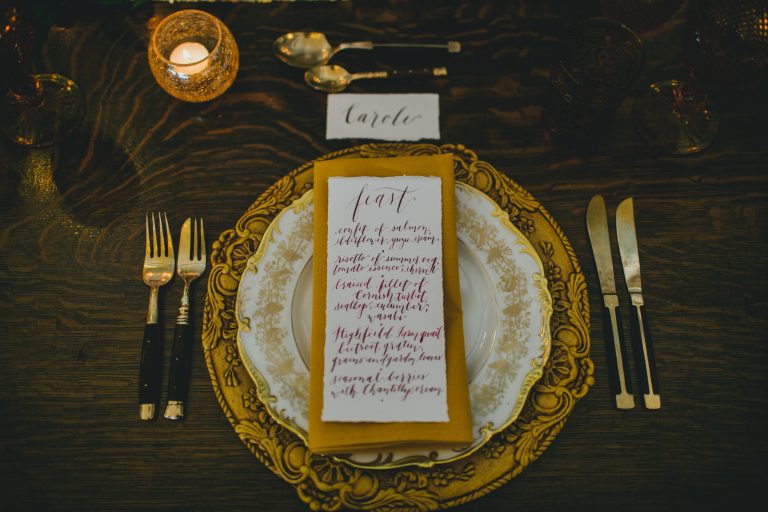 Carole
feast
confit of salmon,
elderflower, yuzu cream
risotto of summer veg,
tomato essence, chervil
braised fillet of
Cornish turbot,
scallop, cucumber,
wasabi
Highfield Farm quail
beetroot gratin,
grains and garden leaves
seasonal berries
with Chantilly cream